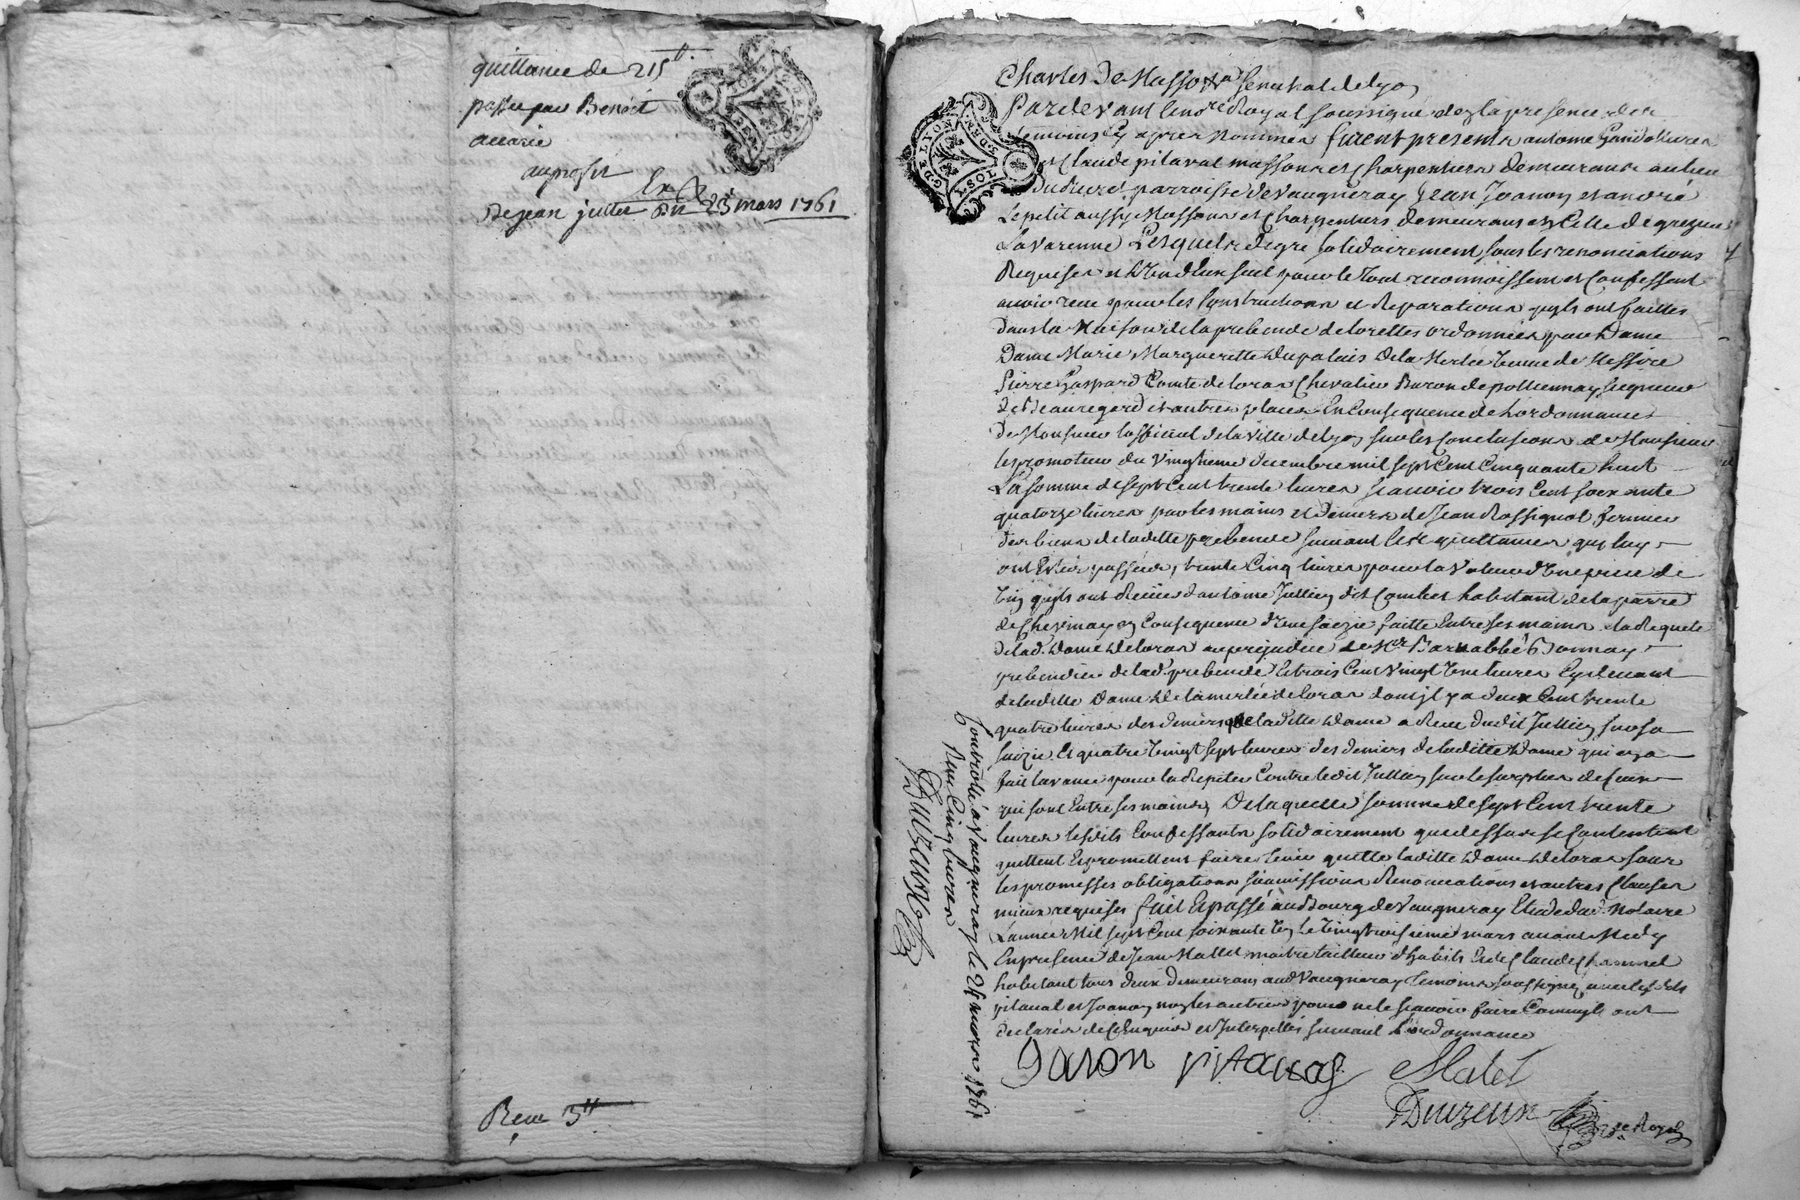 quittance de 215tt
passée par Benoit
accarie
au profit
De jean jullin Du 23 mars 1761
Recu 3tt
Charles De Masso &a senechal de lyon
Pardevant le no.re Royal soussigné et en la presence des
temoins cy apres nommes furent presents antoine
et Claude pitaval massons et Charpentiers demeurants au lieu
parroisse de vaugneray jean joanon et andré
Lepetit aussy Massons et Charpentiers demeurants en celle de grezieu
La varenne Lesquels de gré solidairement sous les renonciations
Requises et d'un d'eux seul pour le tout reconnoissent et Confessent
avoir receu pour les Constructions et Reparations qu'ils ont faittes
Dans la Maison de la prebende de lorettes ordonnées par Dame
Dame Marie Margueritte Dupalais De la Merlée veuve de Messire
Pierre Gaspard Comte de loras Chevalier Baron de pollionnay seigneur
de Beauregard et autres places En Consequence de l'ordonnance
De Monsieur l'official de la ville de lyon sur les Conclusions de Monsieur
le promoteur du vingtieme decembre mil sept Cent Cinquante huit
La somme de sept Cent trente livres sçavoir trois Cent soixante
quatorze livres par les mains et deniers de Jean Rossignol fermier
des biens de laditte prebende suivant les quittances quy luy
ont Eté passées, trente Cinq livres pour la valeur d'une piece de
vin qu'ils ont Reçue d'antoine Jullien dit Combet habitant de la parre
de Chevinay en Consequence d'une saizie faitte Entre ses mains a la Requete
de lad. Dame De loras au prejudice de Mr Barnabbé Bonnay
prebendier de lad. prebende Et trois Cent vingt une livres Cy devant
de laditte Dame De la merlée de loras dont il y a deux Cent trente
quatre livres des deniers que laditte Dame a Receu dudit Jullien sur sa
saizie Et quatre vingt sept livres des deniers de laditte Dame qui en a
fait l'avance pour la Repeter Contre ledit Jullien sur le surplus de Ceux
qui sont Entre ses mains, De laquelle somme de sept Cent trente
livres lesdits Confessants solidairement que dessus se Contentent
quittent Et promettent faire tenir quitte laditte Dame De loras sous
les promesses obligations soumissions Renonciations et autres Clauses
mieux requises fait Et passé au Bourg de vaugneray Etude dud. Notaire
L'année Mil sept Cent soixante un le vingt troisieme mars avant Midy
En presence de Jean Mallet maitre tailleur d'habits Et de Claude
habitant tous deux demeurans aud. vaugneray temoins soussignés avec lesdits
pitaval et Joanon non les autres pour ne le sçavoir faire Comme ils ont
Declarés de Ce Enquis et Interpellés suivant l'ordonnance
Controllé a vaugneray le 25 mars 1761
Recu Cinq livres
pitaval Malet
nre Royal